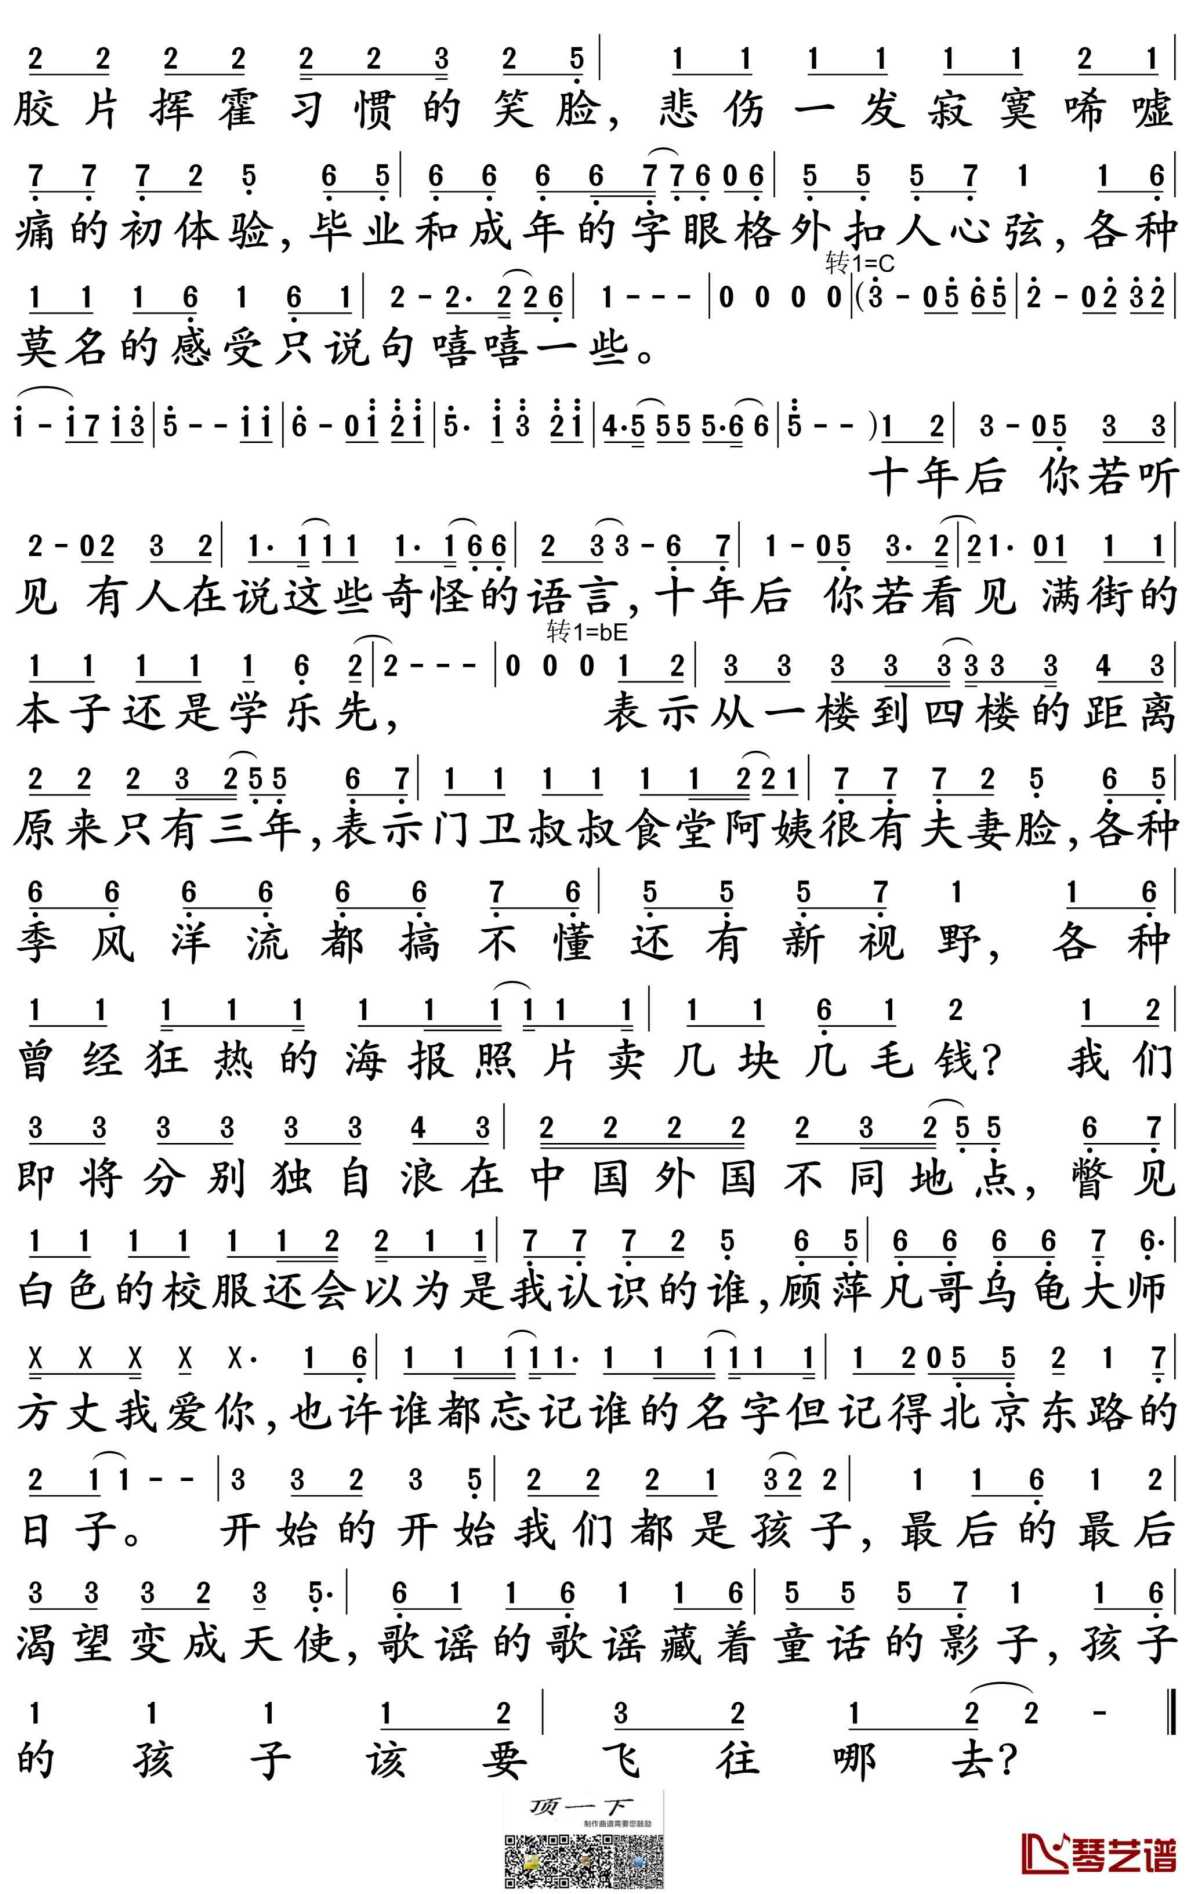 2 2 2 2 2 2 3 2 5 | 1 1 1 1 1 1 2 1 |
胶片挥霍习惯的笑脸，悲伤一发寂寞唏嘘
7 7 7 2 5 6 5 | 6 6 6 6 7 7 6 0 6 | 5 5 5 7 1 1 6 |
痛的初体验，毕业和成年的字眼格外扣人心弦，各种
转1=C
1 1 1 6 1 6 1 | 2 - 2· 2 2 6 | 1 - - - | 0 0 0 0 | (3 - 0 5 6 5 | 2 - 0 2 3 2 |
莫名的感受只说句嘻嘻一些。
1 - 1 7 1 3 | 5 - - 1 1 | 6 - 0 1 2 1 | 5· 1 3 2 1 | 4·5 5 5 5 5·6 6 | 5 - - )1 2 | 3 - 0 5 3 3 |
十年后 你若听
2 - 0 2 3 2 | 1· 1 1 1 1· 1 6 6 | 2 3 3 - 6 7 | 1 - 0 5 3· 2 | 2 1· 0 1 1 1 |
见 有人在说这些奇怪的语言，十年后 你若看见 满街的
转1=bE
1 1 1 1 1 6 2 | 2 - - - | 0 0 0 1 2 | 3 3 3 3 3 3 3 3 4 3 |
本子还是学乐先， 表示从一楼到四楼的距离
2 2 2 3 2 5 5 6 7 | 1 1 1 1 1 1 2 2 1 | 7 7 7 2 5 6 5 |
原来只有三年，表示门卫叔叔食堂阿姨很有夫妻脸，各种
6 6 6 6 6 6 7 6 | 5 5 5 7 1 1 6 |
季风洋流都搞不懂还有新视野，各种
1 1 1 1 1 1 1 1 1 1 1 | 1 1 6 1 2 1 2 |
曾经狂热的海报照片卖几块几毛钱？ 我们
3 3 3 3 3 3 4 3 | 2 2 2 2 2 3 2 5 5 6 7 |
即将分别独自浪在中国外国不同地点，瞥见
1 1 1 1 1 1 2 2 1 1 | 7 7 7 2 5 6 5 | 6 6 6 6 7 6· |
白色的校服还会以为是我认识的谁，顾萍凡哥乌龟大师
X X X X X· 1 6 | 1 1 1 1 1· 1 1 1 1 1 1 | 1 2 0 5 5 2 1 7 |
方丈我爱你，也许谁都忘记谁的名字但记得北京东路的
2 1 1 - - | 3 3 2 3 5 | 2 2 2 1 3 2 2 | 1 1 6 1 2 |
日子。 开始的开始我们都是孩子，最后的最后
3 3 3 2 3 5· | 6 1 1 6 1 1 6 | 5 5 5 7 1 1 6 |
渴望变成天使，歌谣的歌谣藏着童话的影子，孩子
1 1 1 1 2 | 3 2 1 2 2 - ‖
的孩子该要飞往哪去？
顶一下
制作曲谱需要您鼓励
琴艺谱